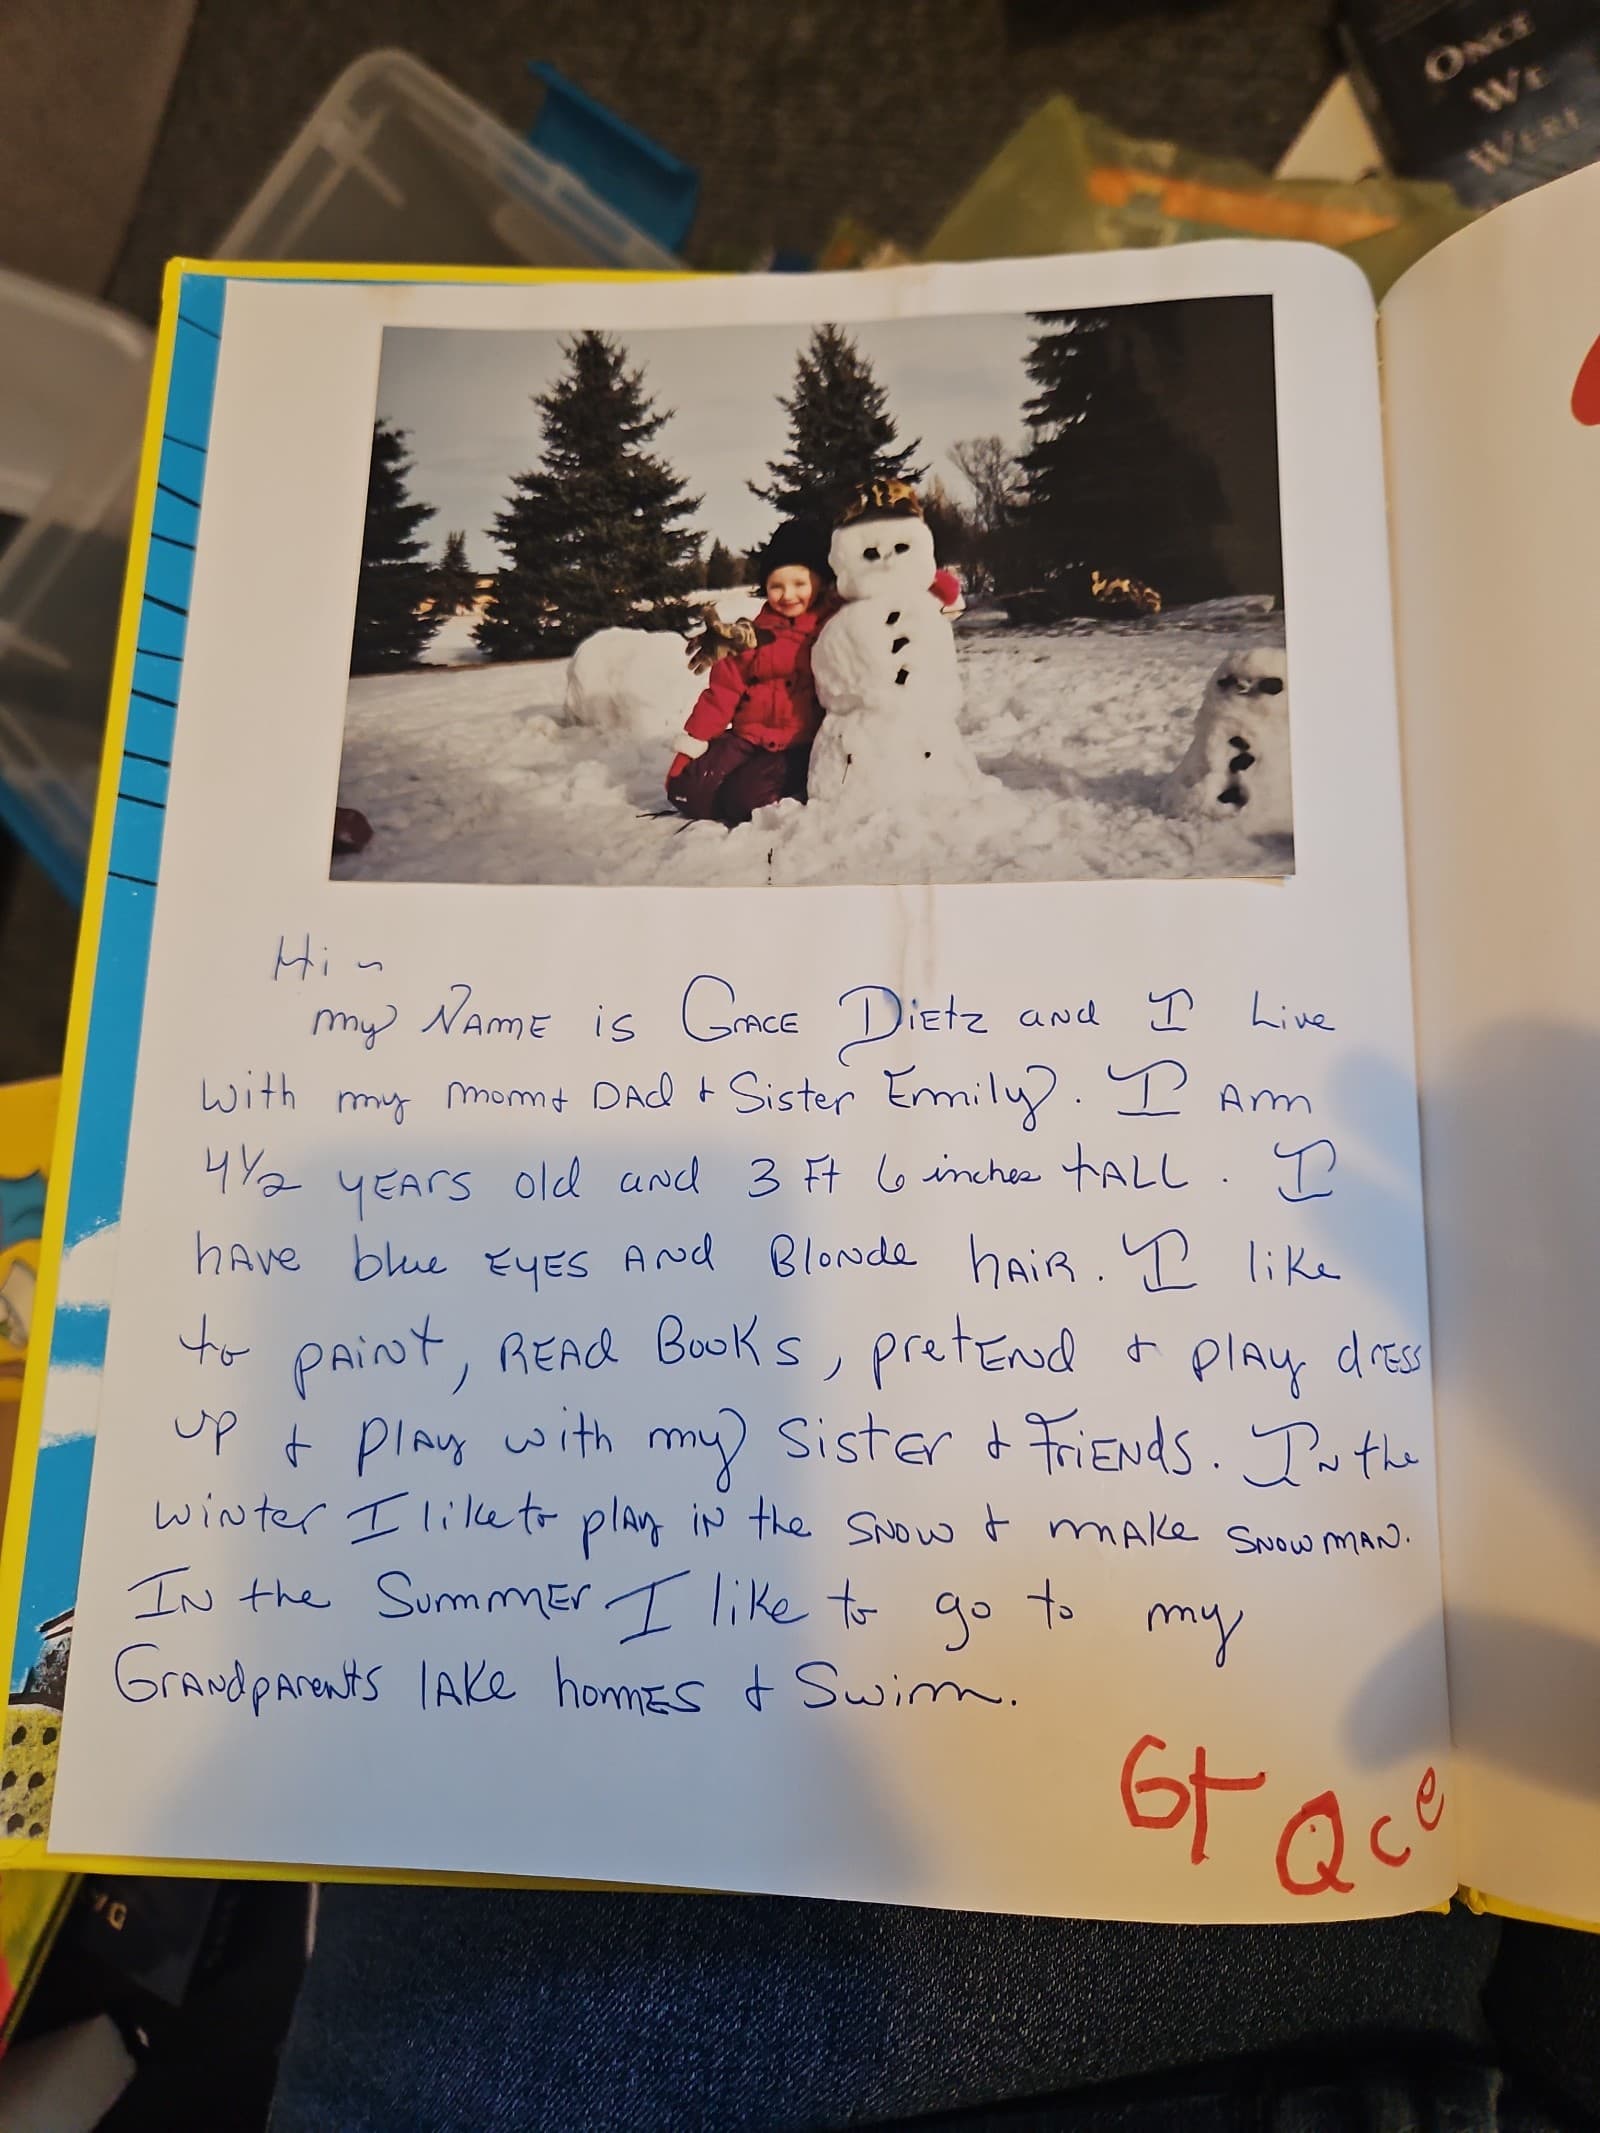 ONCE
WE
WERE
Hi ~
my NAME is GrACE DiEtz and I Live
with my mom + DAd + Sister Emily. I Am
4 1/2 yEArs old and 3 Ft 6 inches tALL. I
hAve blue EyES ANd BloNde hAiR. I like
to pAiNt, REAd Books, pretENd + plAy drESS
up + plAy with my SistEr + FriENds. IN the
wiNter I like to plAy iN the SNow + mAke SNowmAN.
IN the SummEr I like to go to my
GrANdpAreNtS lAke homES + Swim.
Grace